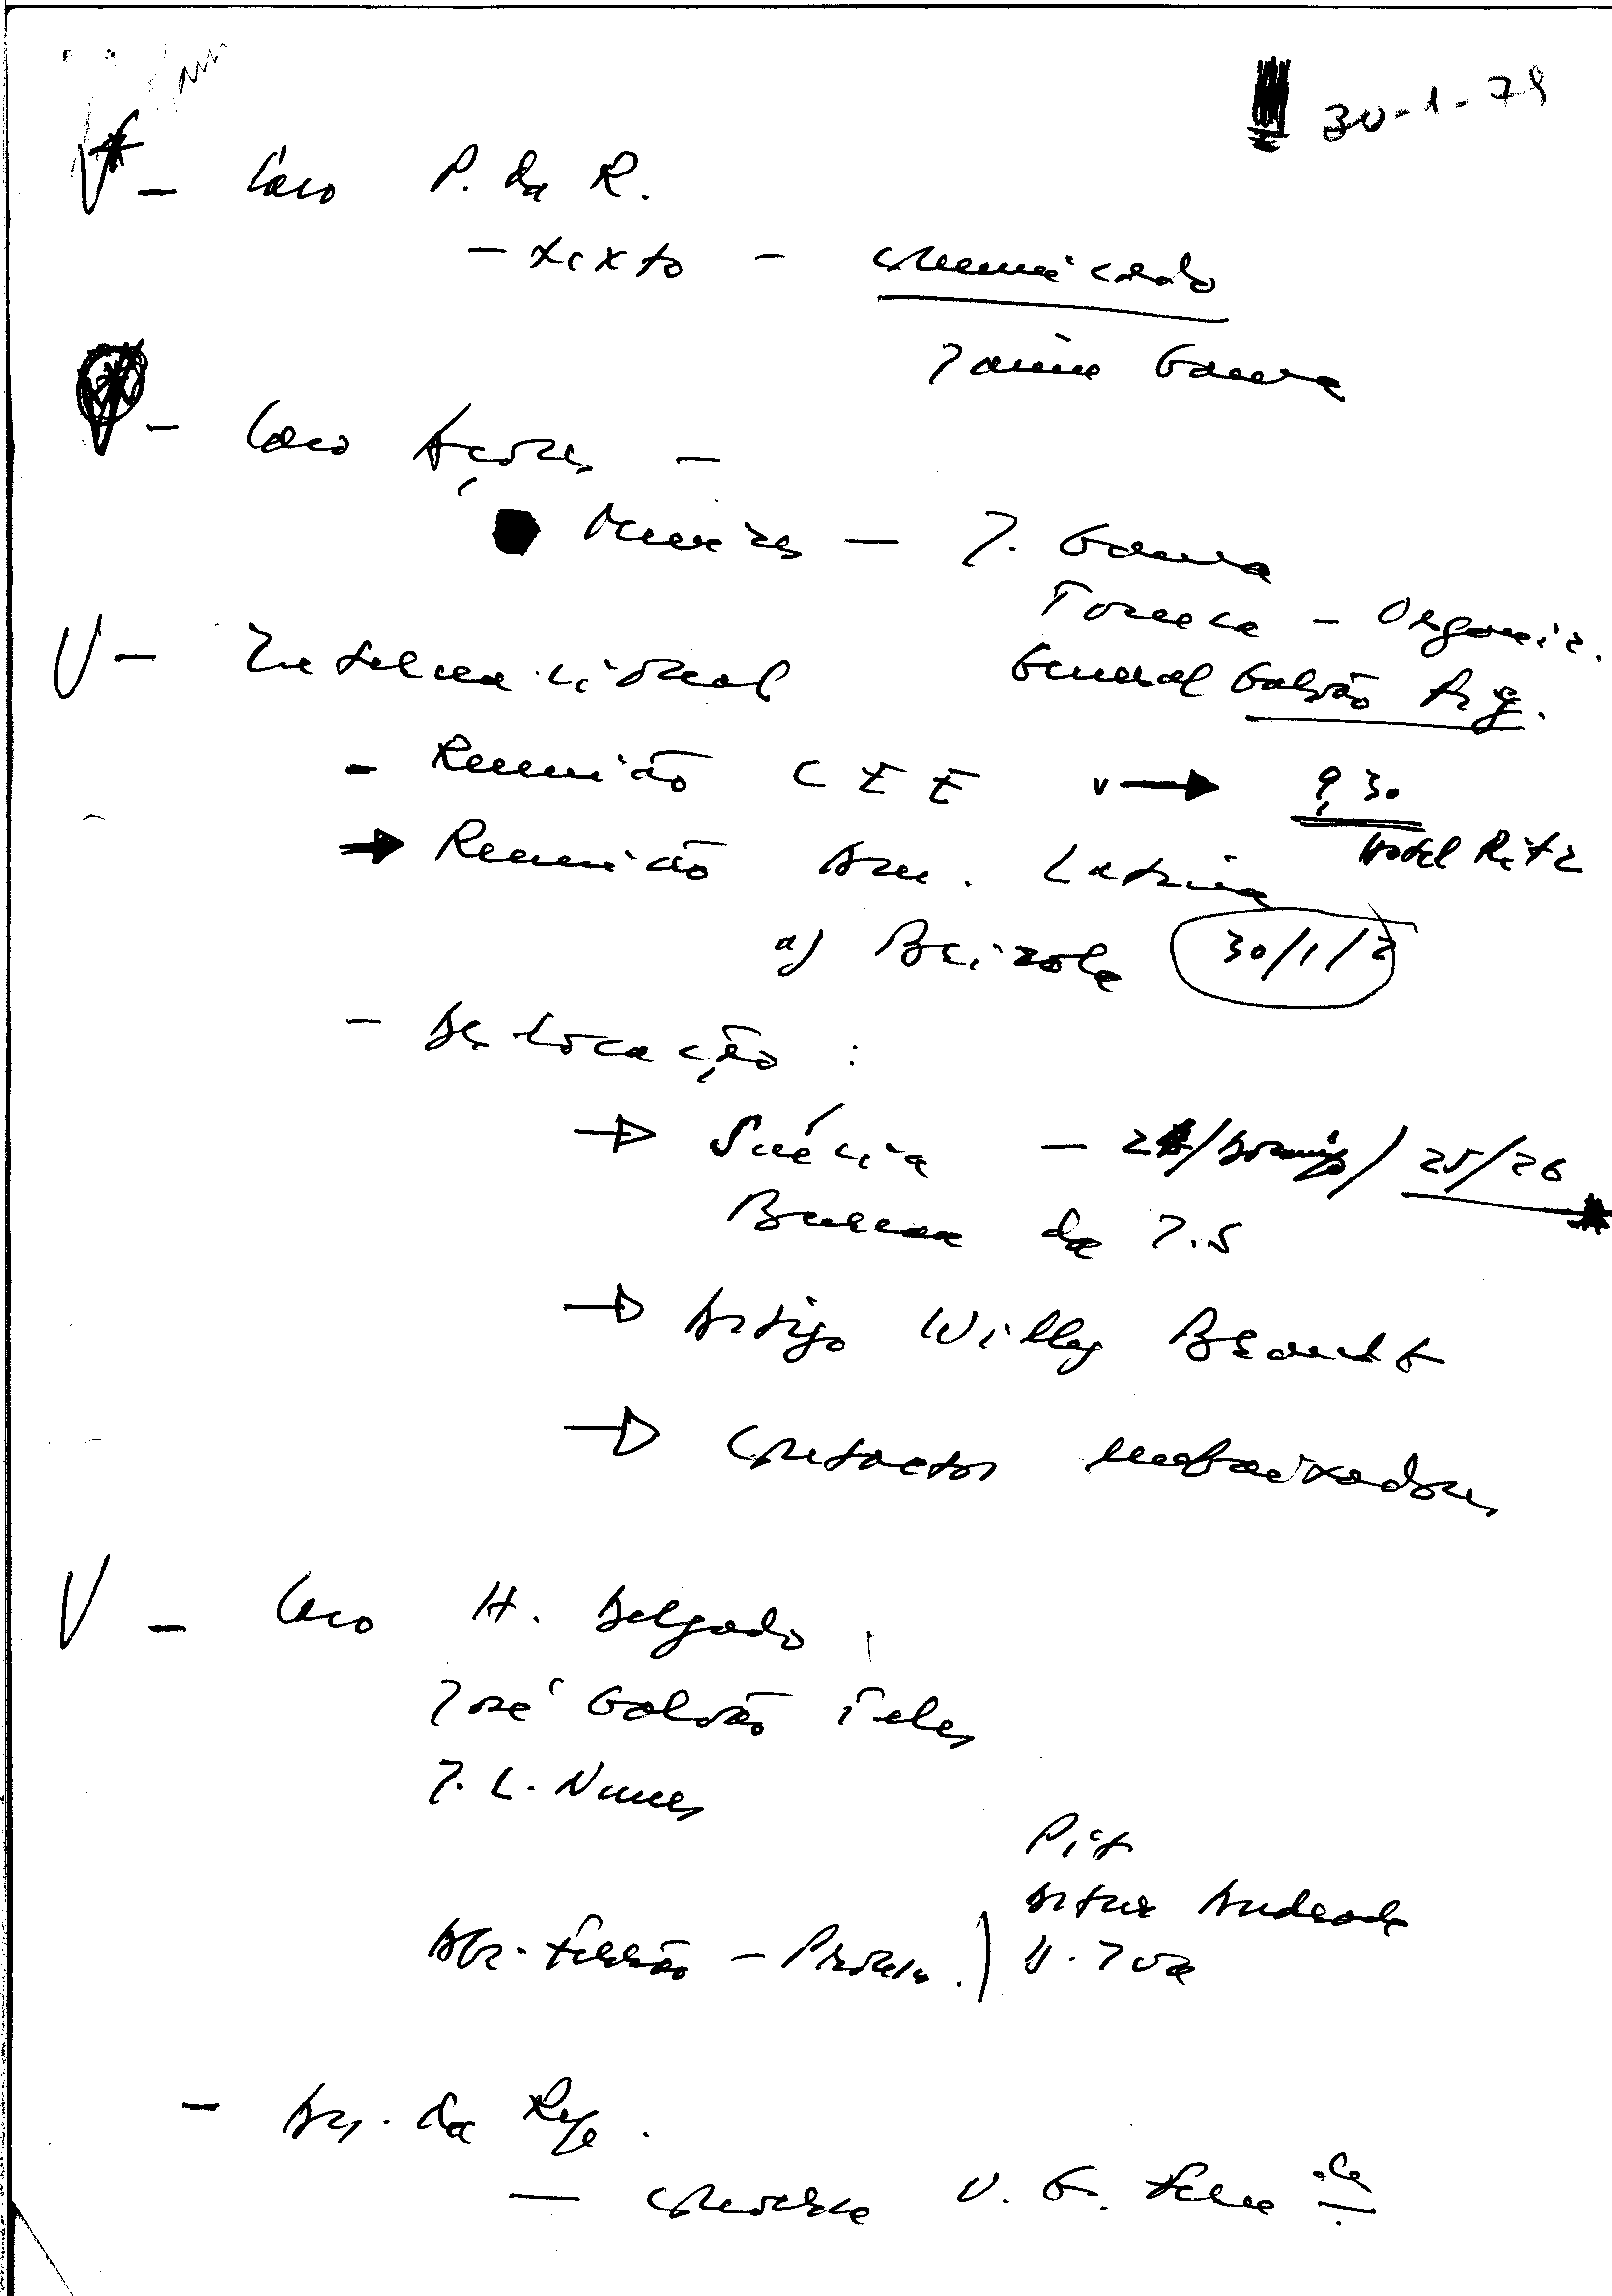 30-1-79
- Caso P. da R.
- texto - comunicado
Jaime Gama
- Caso Açores -
- J. Gama
- Organiz.
V - Internacional
General Galvão Fig.
- Reunião CEE → 9,30
Hotel Ritz
→ Reunião Am. Latina
a) Brizola 30/1/2
- Deslocação :
→ Suécia - 25/26
Bureau da I.S
→ Artigo Willy Brandt
→ Contactos embaixadores
V - Caso H. Delgado
José Galvão Teles
J. L. Nunes
Artur Andrade
- Ass. da Rep.